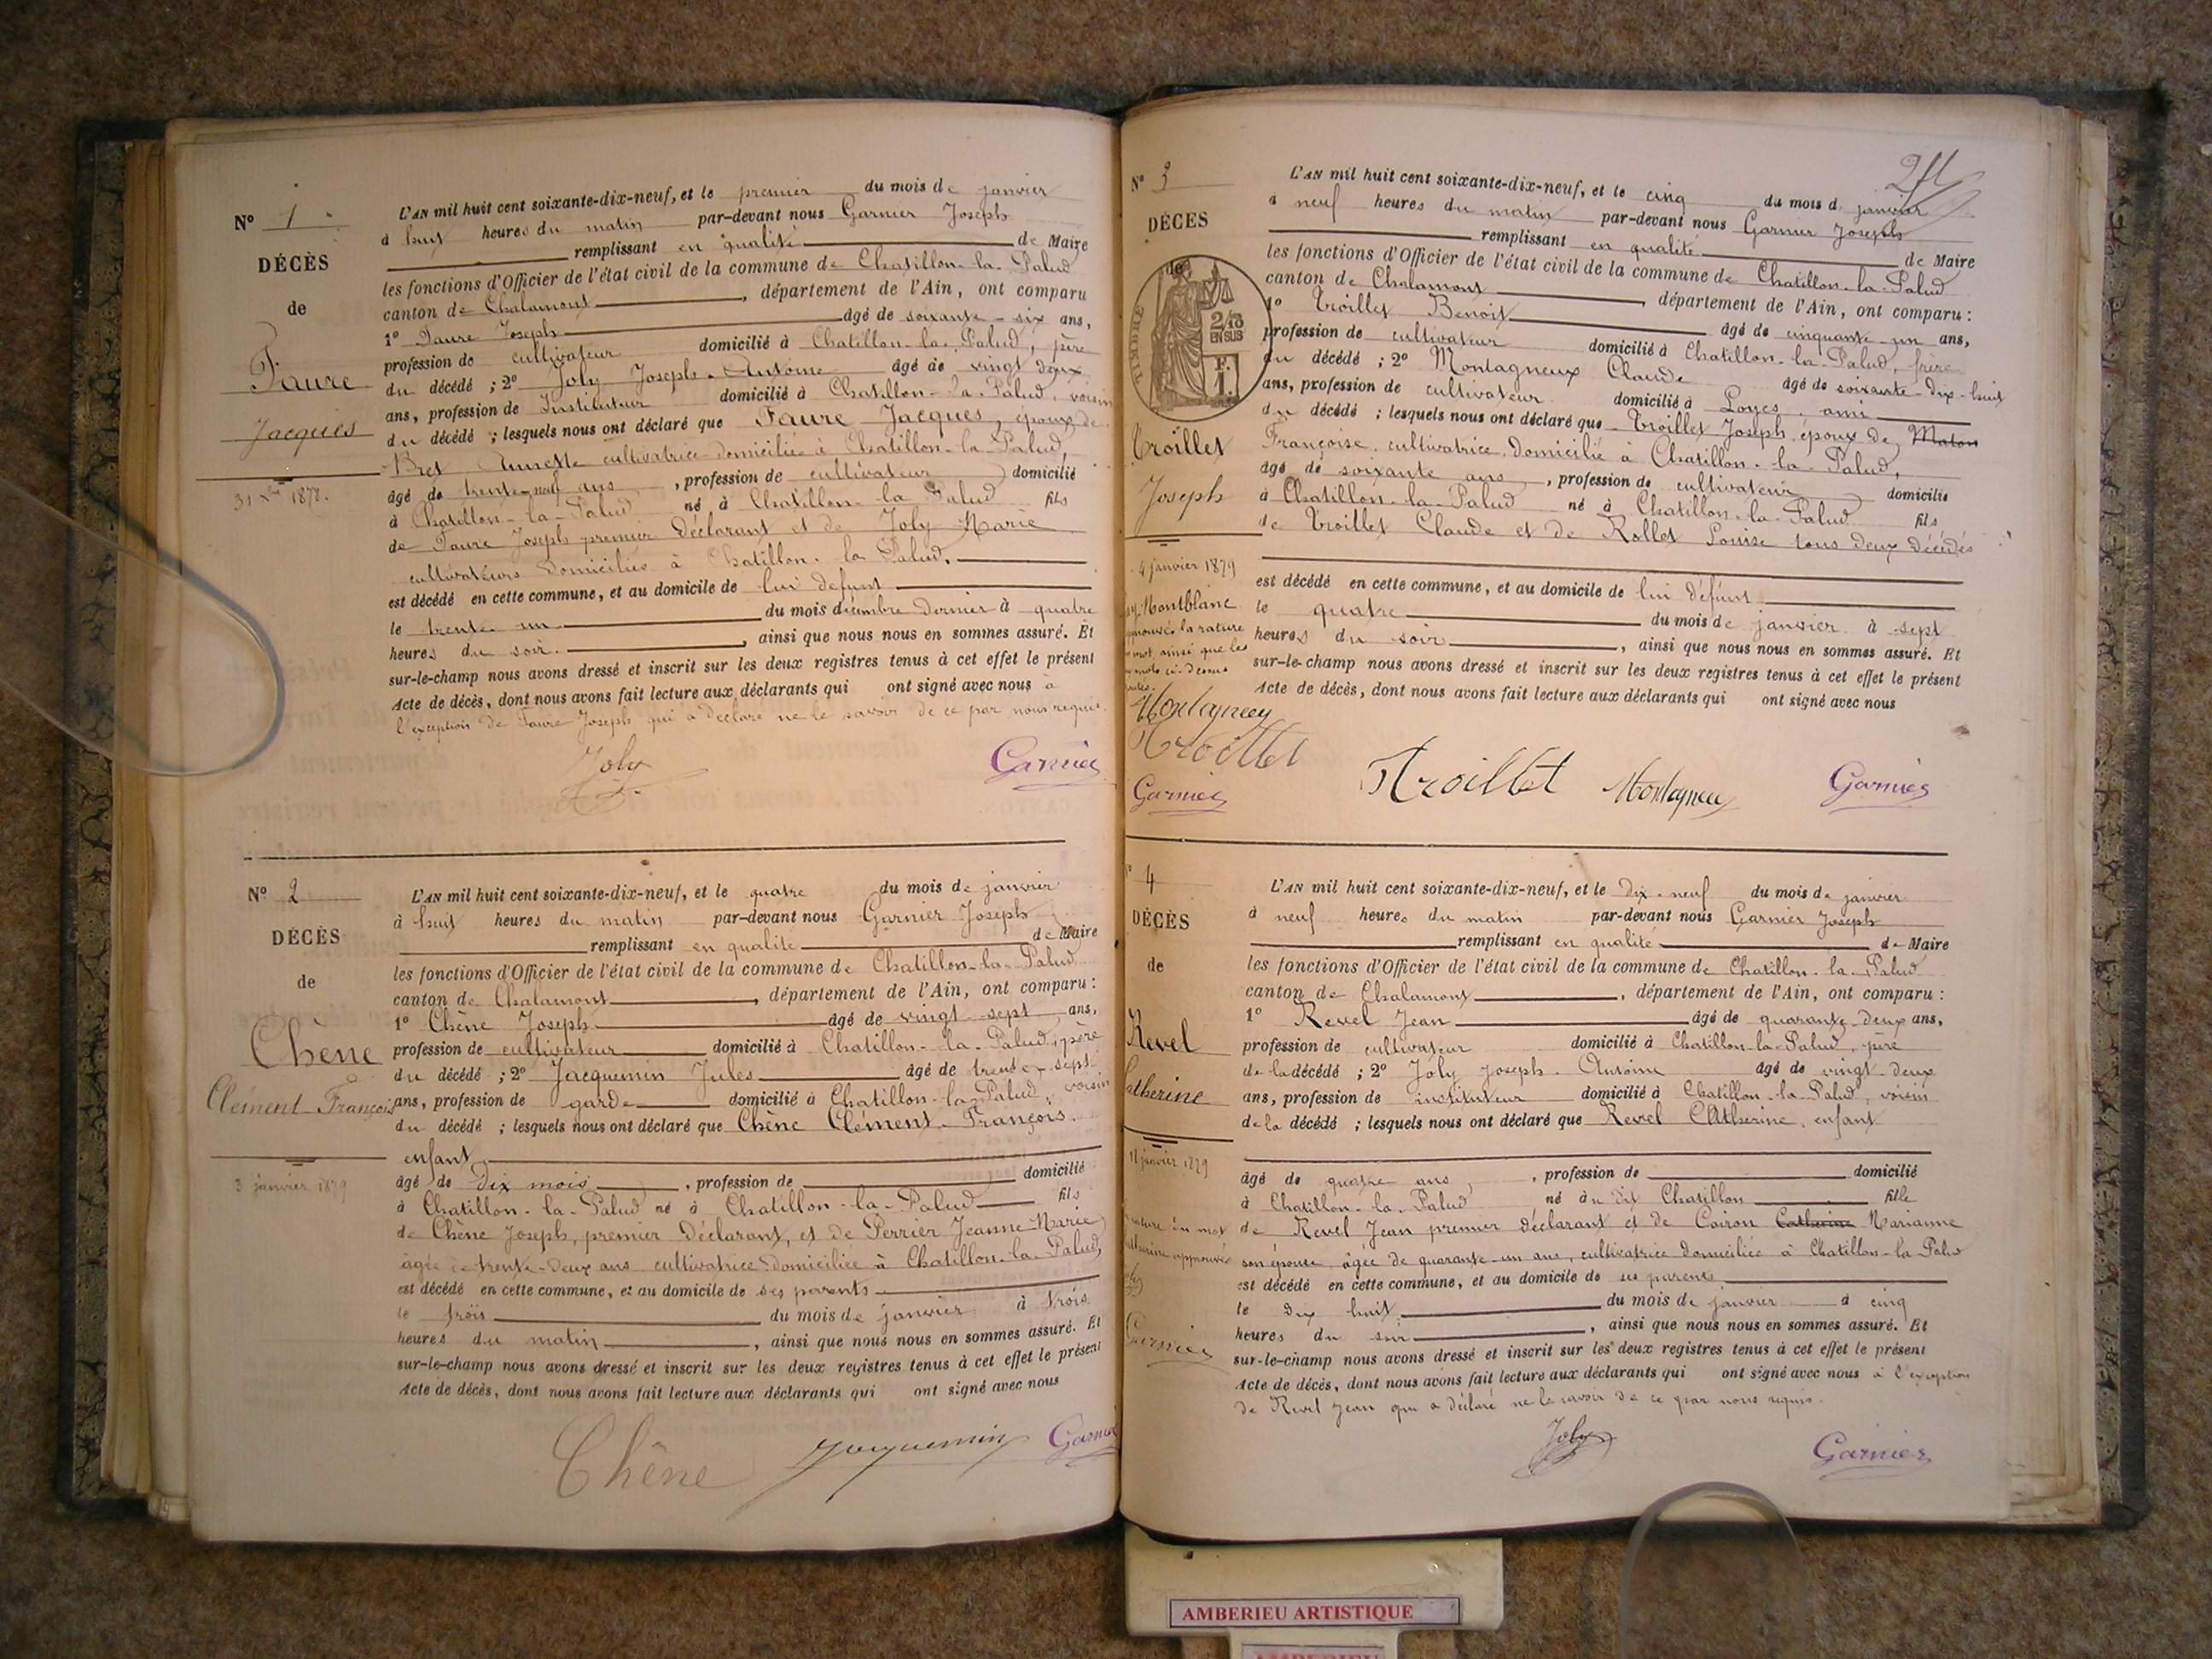 N° 1
DÉCÈS
de
Faure
Jacques
31 Xbre 1878.
L'AN mil huit cent soixante-dix-neuf, et le premier du mois de janvier
à huit heures du matin par-devant nous Garnier Joseph
remplissant en qualité de Maire
les fonctions d'Officier de l'état civil de la commune de Chatillon-la-Palud
canton de Chalamont, département de l'Ain, ont comparu
1° Faure Joseph âgé de soixante-six ans,
profession de cultivateur domicilié à Chatillon-la-Palud, père
du décédé ; 2° Joly Joseph-Antoine âgé de vingt deux
ans, profession de Instituteur domicilié à Chatillon-la-Palud, voisin
du décédé ; lesquels nous ont déclaré que Faure Jacques, époux de
Bret cultivatrice domiciliée à Chatillon-la-Palud,
âgé de trente-neuf ans, profession de cultivateur domicilié
à Chatillon-la-Palud né à Chatillon-la-Palud fils
de Faure Joseph premier déclarant et de Joly Marie
cultivateurs domiciliés à Chatillon-la-Palud.
est décédé en cette commune, et au domicile de lui défunt
le trente un du mois décembre dernier à quatre
heures du soir, ainsi que nous nous en sommes assuré. Et
sur-le-champ nous avons dressé et inscrit sur les deux registres tenus à cet effet le présent
Acte de décès, dont nous avons fait lecture aux déclarants qui ont signé avec nous à
l'exception de Faure Joseph qui a déclaré ne le savoir de ce par nous requis
Joly Garnier
N° 2
DÉCÈS
de
Chêne
Clément-François
3 janvier 1879
L'AN mil huit cent soixante-dix-neuf, et le quatre du mois de janvier
à huit heures du matin par-devant nous Garnier Joseph
remplissant en qualité de Maire
les fonctions d'Officier de l'état civil de la commune de Chatillon-la-Palud
canton de Chalamont, département de l'Ain, ont comparu :
1° Chêne Joseph âgé de vingt sept ans,
profession de cultivateur domicilié à Chatillon-la-Palud, père
du décédé ; 2° Jacquemin Jules âgé de trente-sept
ans, profession de garde domicilié à Chatillon-la-Palud, voisin
du décédé ; lesquels nous ont déclaré que Chêne Clément-François.
enfant,
âgé de dix mois, profession de domicilié
à Chatillon-la-Palud né à Chatillon-la-Palud fils
de Chêne Joseph, premier déclarant, et de Perrier Jeanne-Marie
âgée de trente-deux ans cultivatrice domiciliée à Chatillon-la-Palud,
est décédé en cette commune, et au domicile de ses parents
le trois du mois de janvier à trois
heures du matin, ainsi que nous nous en sommes assuré. Et
sur-le-champ nous avons dressé et inscrit sur les deux registres tenus à cet effet le présent
Acte de décès, dont nous avons fait lecture aux déclarants qui ont signé avec nous
Chêne Jacquemin Garnier
N° 3
DÉCÈS
de
TIMBRE
2/10
EN SUS
F.
1.
Troillet
Joseph
4 janvier 1879
Montblanc
la rature
mot ainsi que les
mots ci-dessus
Montagneux
Troillet
Garnier
L'AN mil huit cent soixante-dix-neuf, et le cinq du mois d janvier
à neuf heures du matin par-devant nous Garnier Joseph
remplissant en qualité de Maire
les fonctions d'Officier de l'état civil de la commune de Chatillon-la-Palud
canton de Chalamont, département de l'Ain, ont comparu :
1° Troillet Benoit âgé de cinquante-un ans,
profession de cultivateur domicilié à Chatillon-la-Palud, frère
du décédé ; 2° Montagneux Claude âgé de soixante-dix-huit
ans, profession de cultivateur domicilié à Loyes, ami
du décédé ; lesquels nous ont déclaré que Troillet Joseph époux de Maton
Françoise, cultivatrice domicilié à Chatillon-la-Palud,
âgé de soixante ans, profession de cultivateur domicilié
à Chatillon-la-Palud né à Chatillon-la-Palud fils
de Troillet Claude et de Rollet Louise tous deux décédés
est décédé en cette commune, et au domicile de lui défunt
le quatre du mois de janvier à sept
heures du soir, ainsi que nous nous en sommes assuré. Et
sur-le-champ nous avons dressé et inscrit sur les deux registres tenus à cet effet le présent
Acte de décès, dont nous avons fait lecture aux déclarants qui ont signé avec nous
Troillet Montagneux Garnier
4
DÉCÈS
de
Revel
Catherine
rature un mot
approuvée
Garnier
L'AN mil huit cent soixante-dix-neuf, et le dix-neuf du mois de janvier
à neuf heures du matin par-devant nous Garnier Joseph
remplissant en qualité de Maire
les fonctions d'Officier de l'état civil de la commune de Chatillon-la-Palud
canton de Chalamont, département de l'Ain, ont comparu :
1° Revel Jean âgé de quarante-deux ans,
profession de cultivateur domicilié à Chatillon-la-Palud, père
de la décédé ; 2° Joly Joseph-Antoine âgé de vingt-deux
ans, profession de instituteur domicilié à Chatillon-la-Palud, voisin
de la décédé ; lesquels nous ont déclaré que Revel Catherine, enfant
âgé de quatre ans, profession de domicilié
à Chatillon-la-Palud né à u dit Chatillon fille
de Revel Jean premier déclarant et de Coiron Catherine Marianne
son épouse, âgée de quarante-un ans, cultivatrice domiciliée à Chatillon-la-Palud
est décédé en cette commune, et au domicile de ses parents
le dix huit du mois de janvier à cinq
heures du soir, ainsi que nous nous en sommes assuré. Et
sur-le-champ nous avons dressé et inscrit sur les deux registres tenus à cet effet le présent
Acte de décès, dont nous avons fait lecture aux déclarants qui ont signé avec nous à l'exception
de Revel Jean qui a déclaré ne le savoir de ce par nous requis.
Joly Garnier
AMBERIEU ARTISTIQUE
AMBERIEU